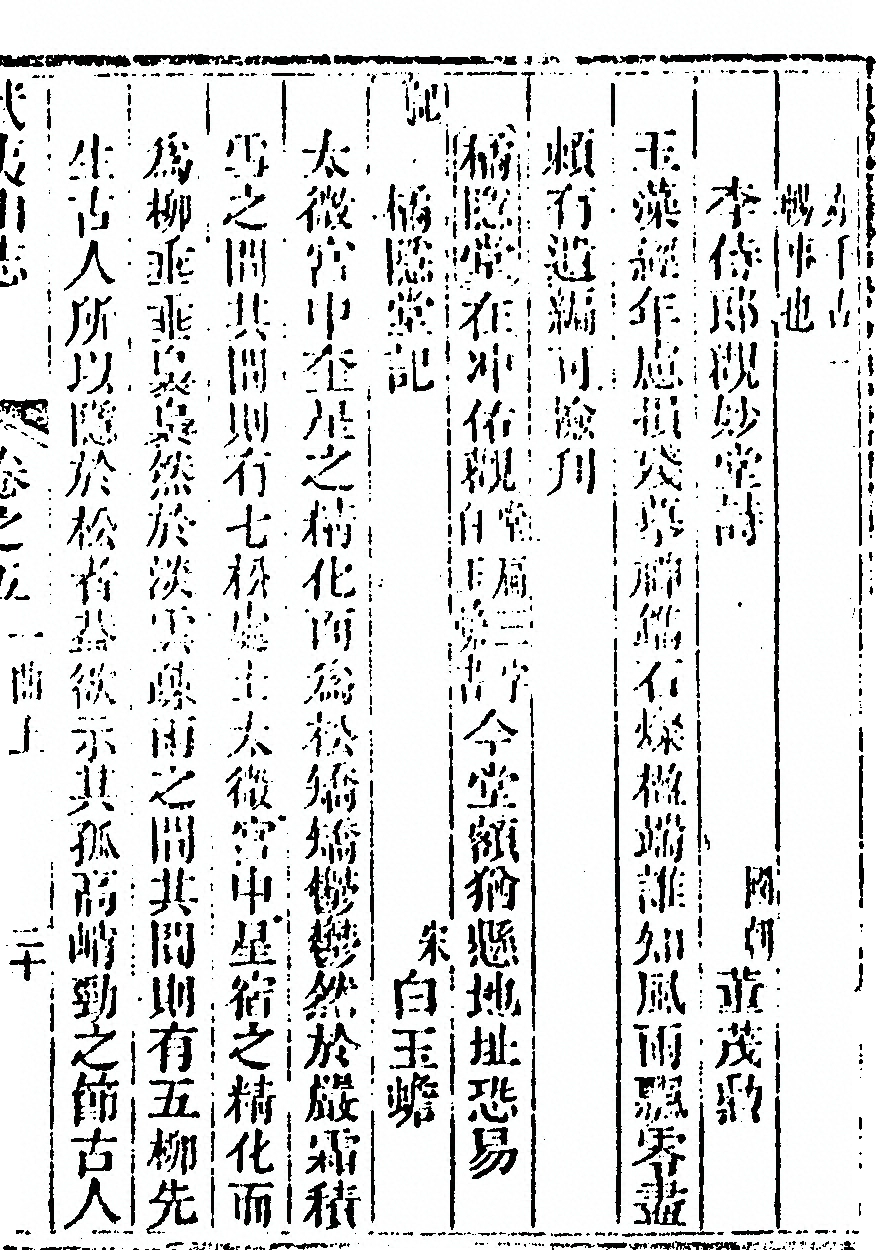 亦千古一
事也
李侍郎觀妙堂詩 國朝 董茂勳
玉藻經年應損殘摹鐫石燦楹端誰知風雨飄零盡
賴有遺編可刊
橘隱堂在冲佑觀堂扁三字白玉蟾書今堂額猶懸地址恐易
記
橘隱堂記 宋 白玉蟾
太微宮中奎星之精化而為松矯矯鬱鬱然於嚴霜積
雪之間其間則有七松處士太微宮中星宿之精化而
為柳垂垂裊裊然於淡雲疎雨之間其間則有五柳先
生古人所以隱於松者葢欲示其孤高峭勁之節古人
武夷山志 卷之五 一曲上 二十